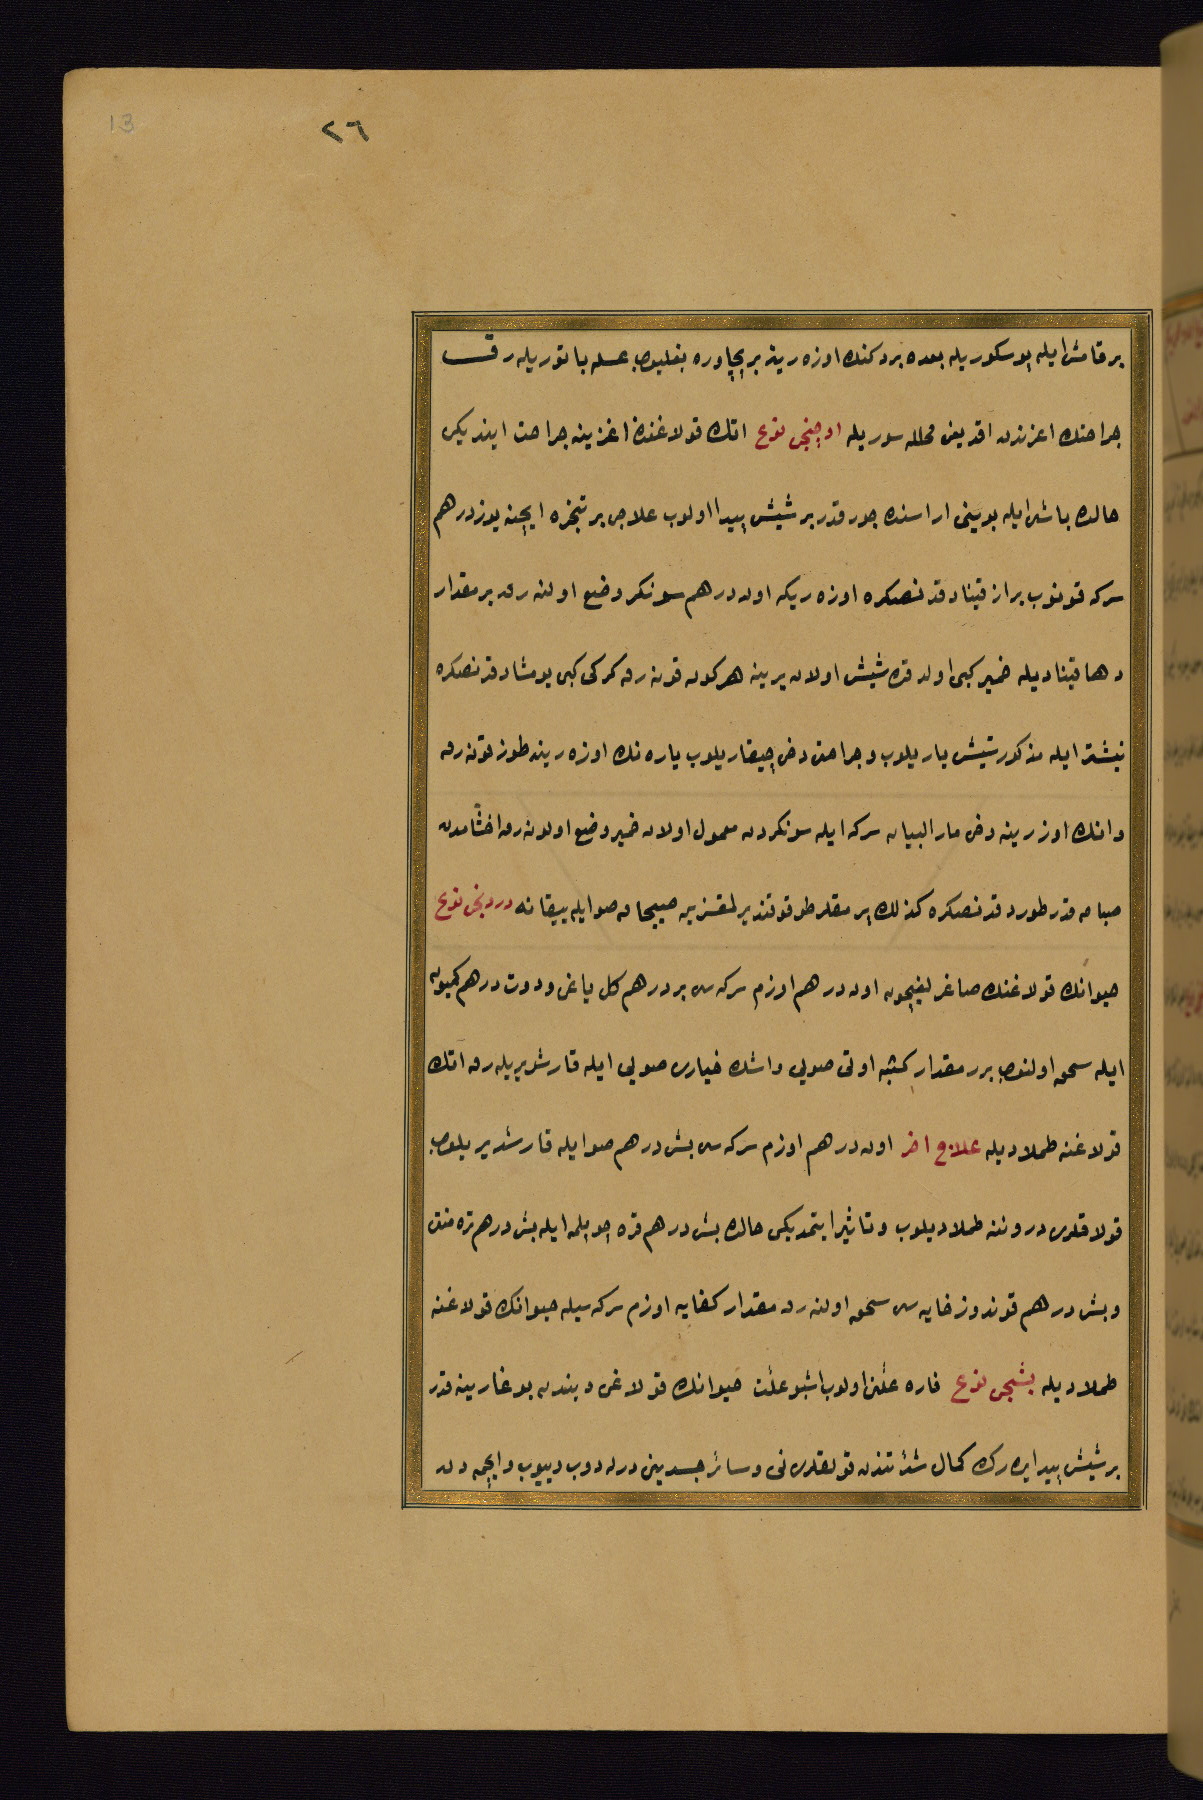 13
٢٦
بر قامش ايله پوسكوريله بعده بر دكنك اوزه رينه بر پچاوره بغليوب عسله باتوريله رق
جراحتك اغزندن اقديغى محلله سوريله اوچنجى نوع اتك قولاغنك اغزينه جراحت ايندیكى
حالده باشى ايله بوينى اراسنده جور قدر بر شيش پيدا اولوب علاجى بر تنجره ايچنه يوز درهم
سركه قونوب براز قيناد قدنصكره اوزه ريكه اون درهم سونكر وضع اولنه رق بر مقدار
دها قيناديله خمير كبى اولدقده شيش اولان يرينه هركون قونه رق كركى كبى يومشادقدنصكره
نيشتر ايله مذكور شيش ياريلوب وجراحتى دخى چيقاريلوب ياره نك اوزه رينه طوز قونه رق
وانك اوزرينه دخى مار البيان سركه ايله سونكردن معمول اولان خمير وضع اولونه رق اخشامدن
صباحه قدر طوردقدنصكره كذلك بر مقدار طوقوندير لمقسزين صيجاق صو ايله ييقانه دردنجى نوع
حيوانك قولاغنك صاغر لغيچون اون درهم اوزم سركه سى بر درهم كل ياغى ودرت درهم كميون
ايله سحق اولنوب برر مقدار كشبه اوتى صويى واشك خيارى صويى ايله قارشديريله رق اتك
قولاغنه طملاديله علاج اخر اون درهم اوزم سركه سى بش درهم صو ايله قارشديريلوب
قولاقلرى دروننه طملاديلوب وتاثير ايتمديكى حالده بش درهم قره چوپلمه ايله بش درهم تره منتن
وبش درهم قوندوز خايه سى سحق اولنه رق مقدار كفايه اوزم سركه سيله حيوانك قولاغنه
طملاديله بشنجى نوع فاره علتى اولوب اشبو علت حيوانك قولاغى ديبندن بوغازينه قدر
بر شيش پيدا ايده رك كمال شدتندن قولقلرى نى وسائر جسدينى درلدوب دييوب وايچمه دن